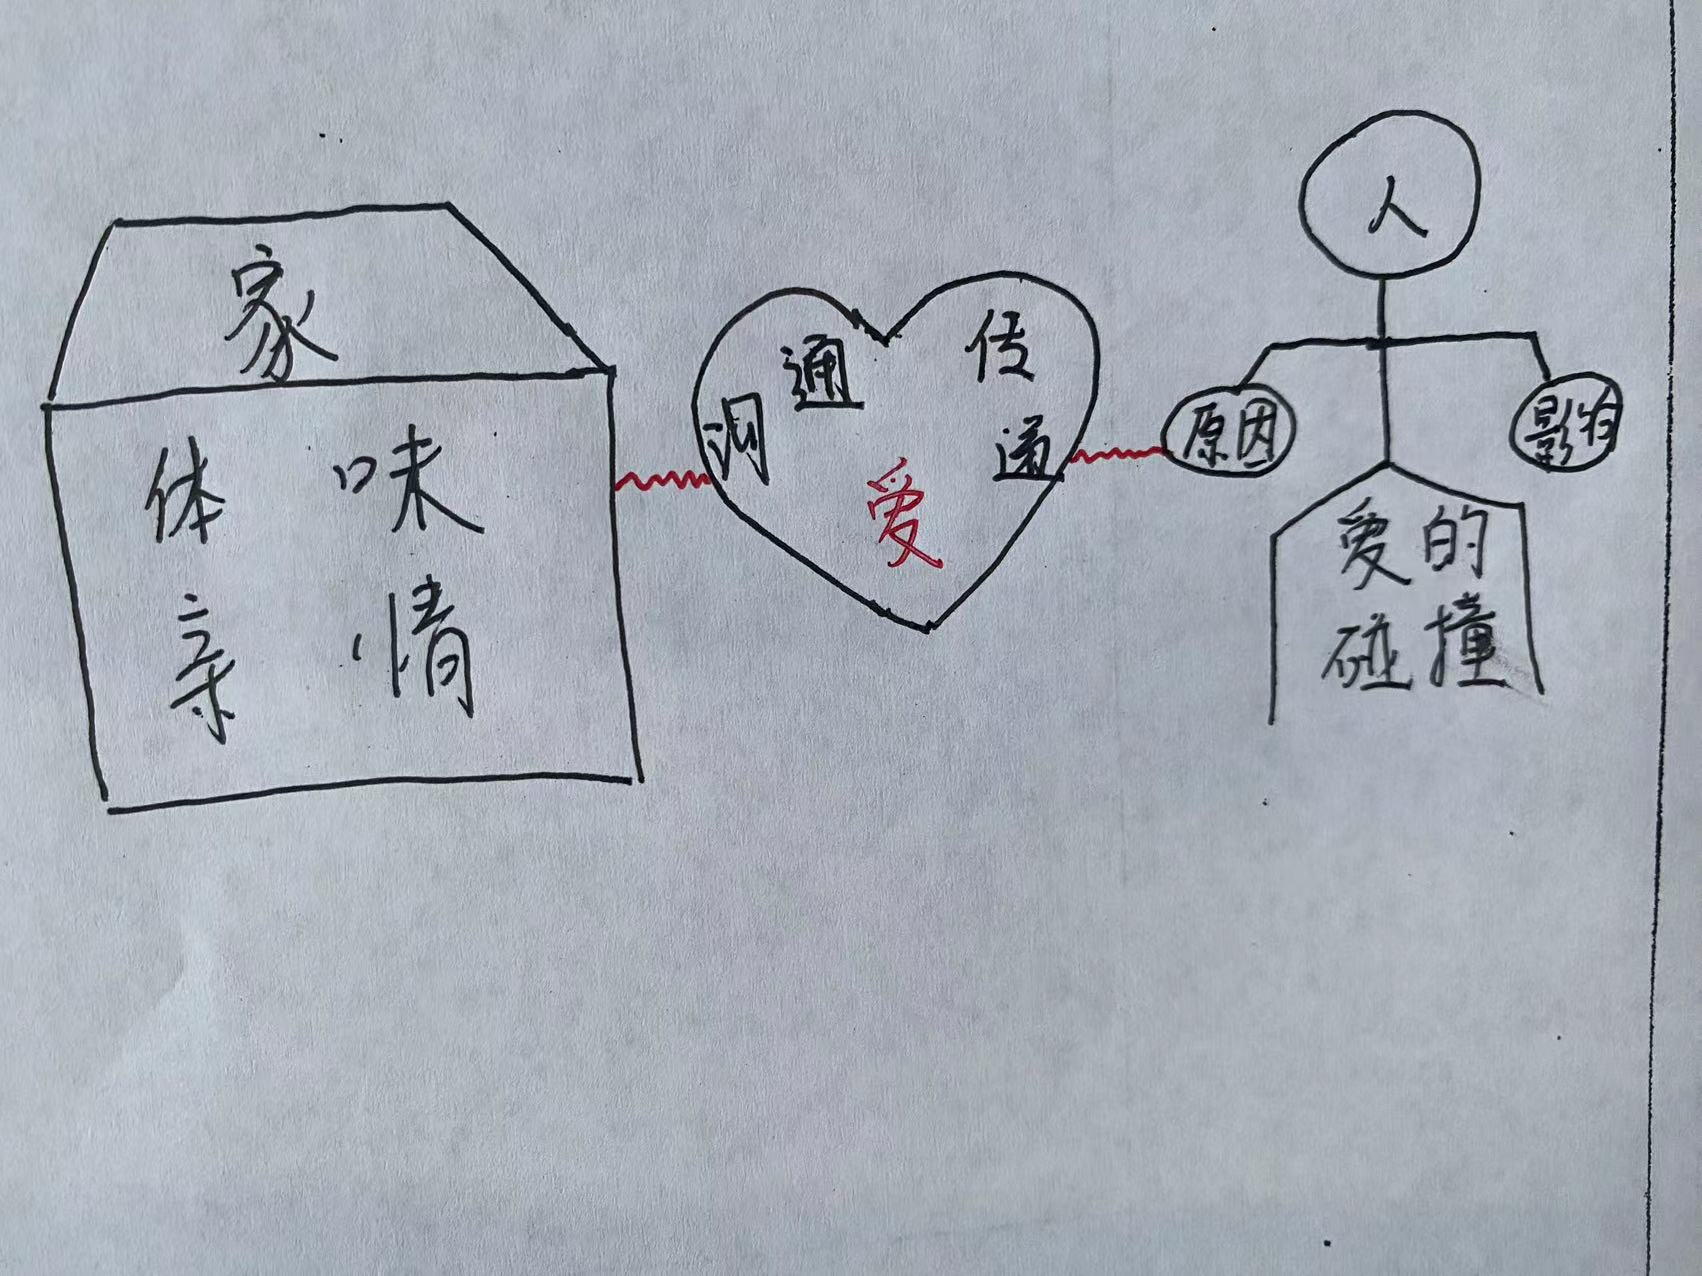 家
体味
亲情
通
传递
爱
人
原因
影响
爱的
碰撞